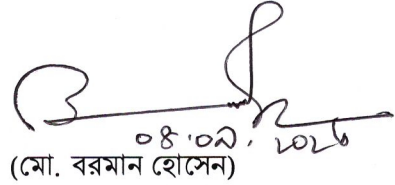 ০৪.০৯.২০২৮
(মো. বরমান হোসেন)